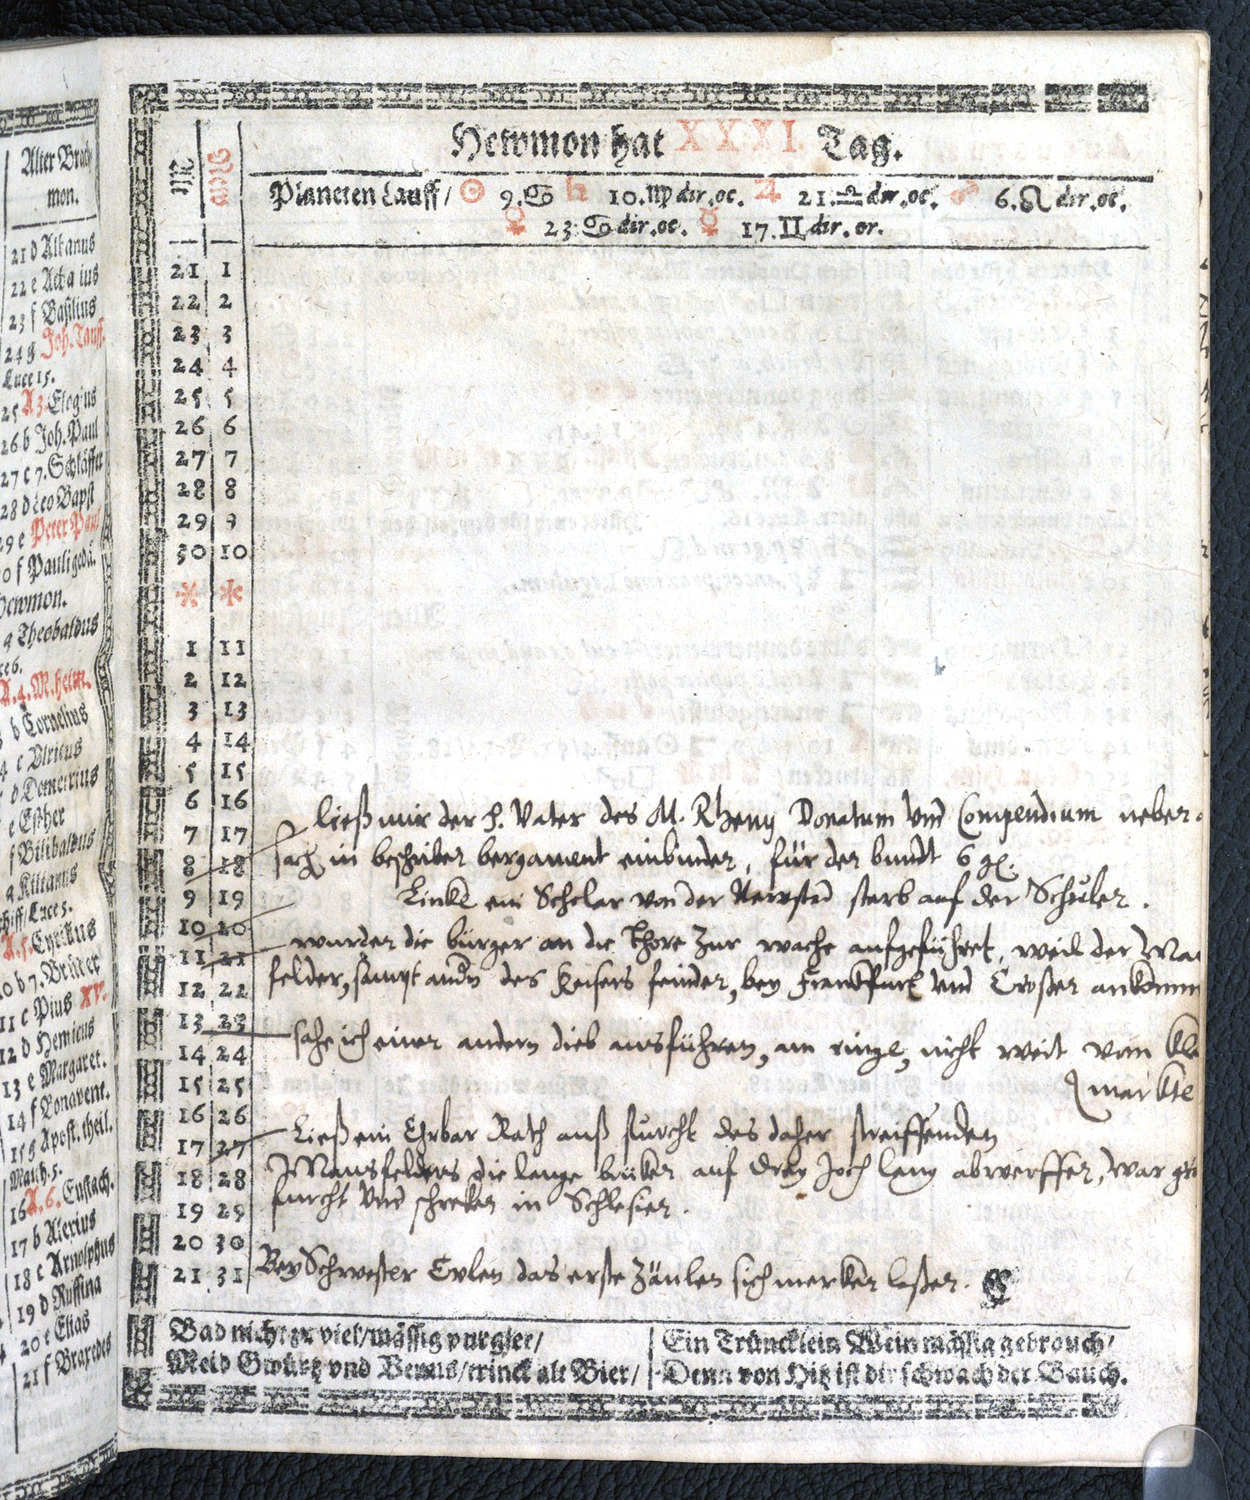 Alter Brach
mon.
21 d Albanus
22 e Acha ius
23 f Basilius
24 g Joh. Tauff.
Luce 15.
25 A 3. Elogius
26 b Joh. Paul
27 c 7. Schläffer
28 d Leo Bapst
29 e Peter Paul
0 f Pauli gedä.
Hewmon.
g Theobaldus
A. 4. M. heim.
b Cornelius
c Ulricus
d Demetrius
e Esther
f Bilibaldus
g Kilianus
schiff/Luce 5.
A. 5. Cyrillus
10 b 7. Brüder
11 c Pius XV.
12 d Henricus
13 e Margaret.
14 f Bonavent.
15 g Apost. theil.
Matth. 5.
16 A. 6. Eustach.
17 b Alexius
18 c Arnolphus
19 d Ruffina
20 e Elias
21 f Braxedes
Hewmon hat XXXI. Tag.
Planeten Lauff/ ☉ 9.♋ ♄ 10.♍ dir.oc. ♃ 21.♎ dir.oc. ♂ 6.♌ dir.oc.
♀ 23.♋ dir.oc. ☿ 17.♊ dir.or.
21 1
22 2
23 3
24 4
25 5
26 6
27 7
28 8
29 9
30 10
* *
1 11
2 12
3 13
4 14
5 15
6 16
7 17
8 18
9 19
10 20
11 21
12 22
13 23
14 24
15 25
16 26
17 27
18 28
19 29
20 30
21 31
ließ mir der H. Vater des M. Rhenij Donatum vnd Compendium neben
in beschriben bergament einbinden, für den bundt 6 gl.
Linke ein Scholar von der Newstad starb auf der Schulen.
wurden die bürger an die Thore zur wache aufgeführet, weil der Ma
felder, sampt andn des Keisers feinden, bey Frankfurt vnd Croßen ankomm
sahe ich einen andern dieb ausführen, am ringe, nicht weit vom
markte
Ließ ein Ehrbar Rath auß furcht des daher streiffenden
Mansfelders die lange brüken auf drey Joch lang abwerffen, war
furcht vnd schreken in Schlesien.
Bey Schwester Evlen das erste Zänlen sich merken laßen.
Bad nicht zu viel/mässig purgier/
Meid Gwürtz vnd Venus/trinck alt Bier/
Ein Trüncklein Wein mässig gebrauch/
Denn von Hitz ist dir schwach der Bauch.